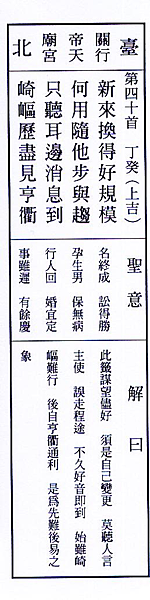 臺北
關帝廟
行天宮
第四十首 丁癸（上吉）
新來換得好規模
何用隨他步與趨
只聽耳邊消息到
崎嶇歷盡見亨衢
聖意
名終成 訟得勝
孕生男 保無病
行人回 婚宜定
事雖遲 有餘慶
解曰
此籤謀望儘好 須是自己變更 莫聽人言
主使 誤走程途 不久好音即到 始雖崎
嶇難行 後自亨衢通利 是為先難後易之
象